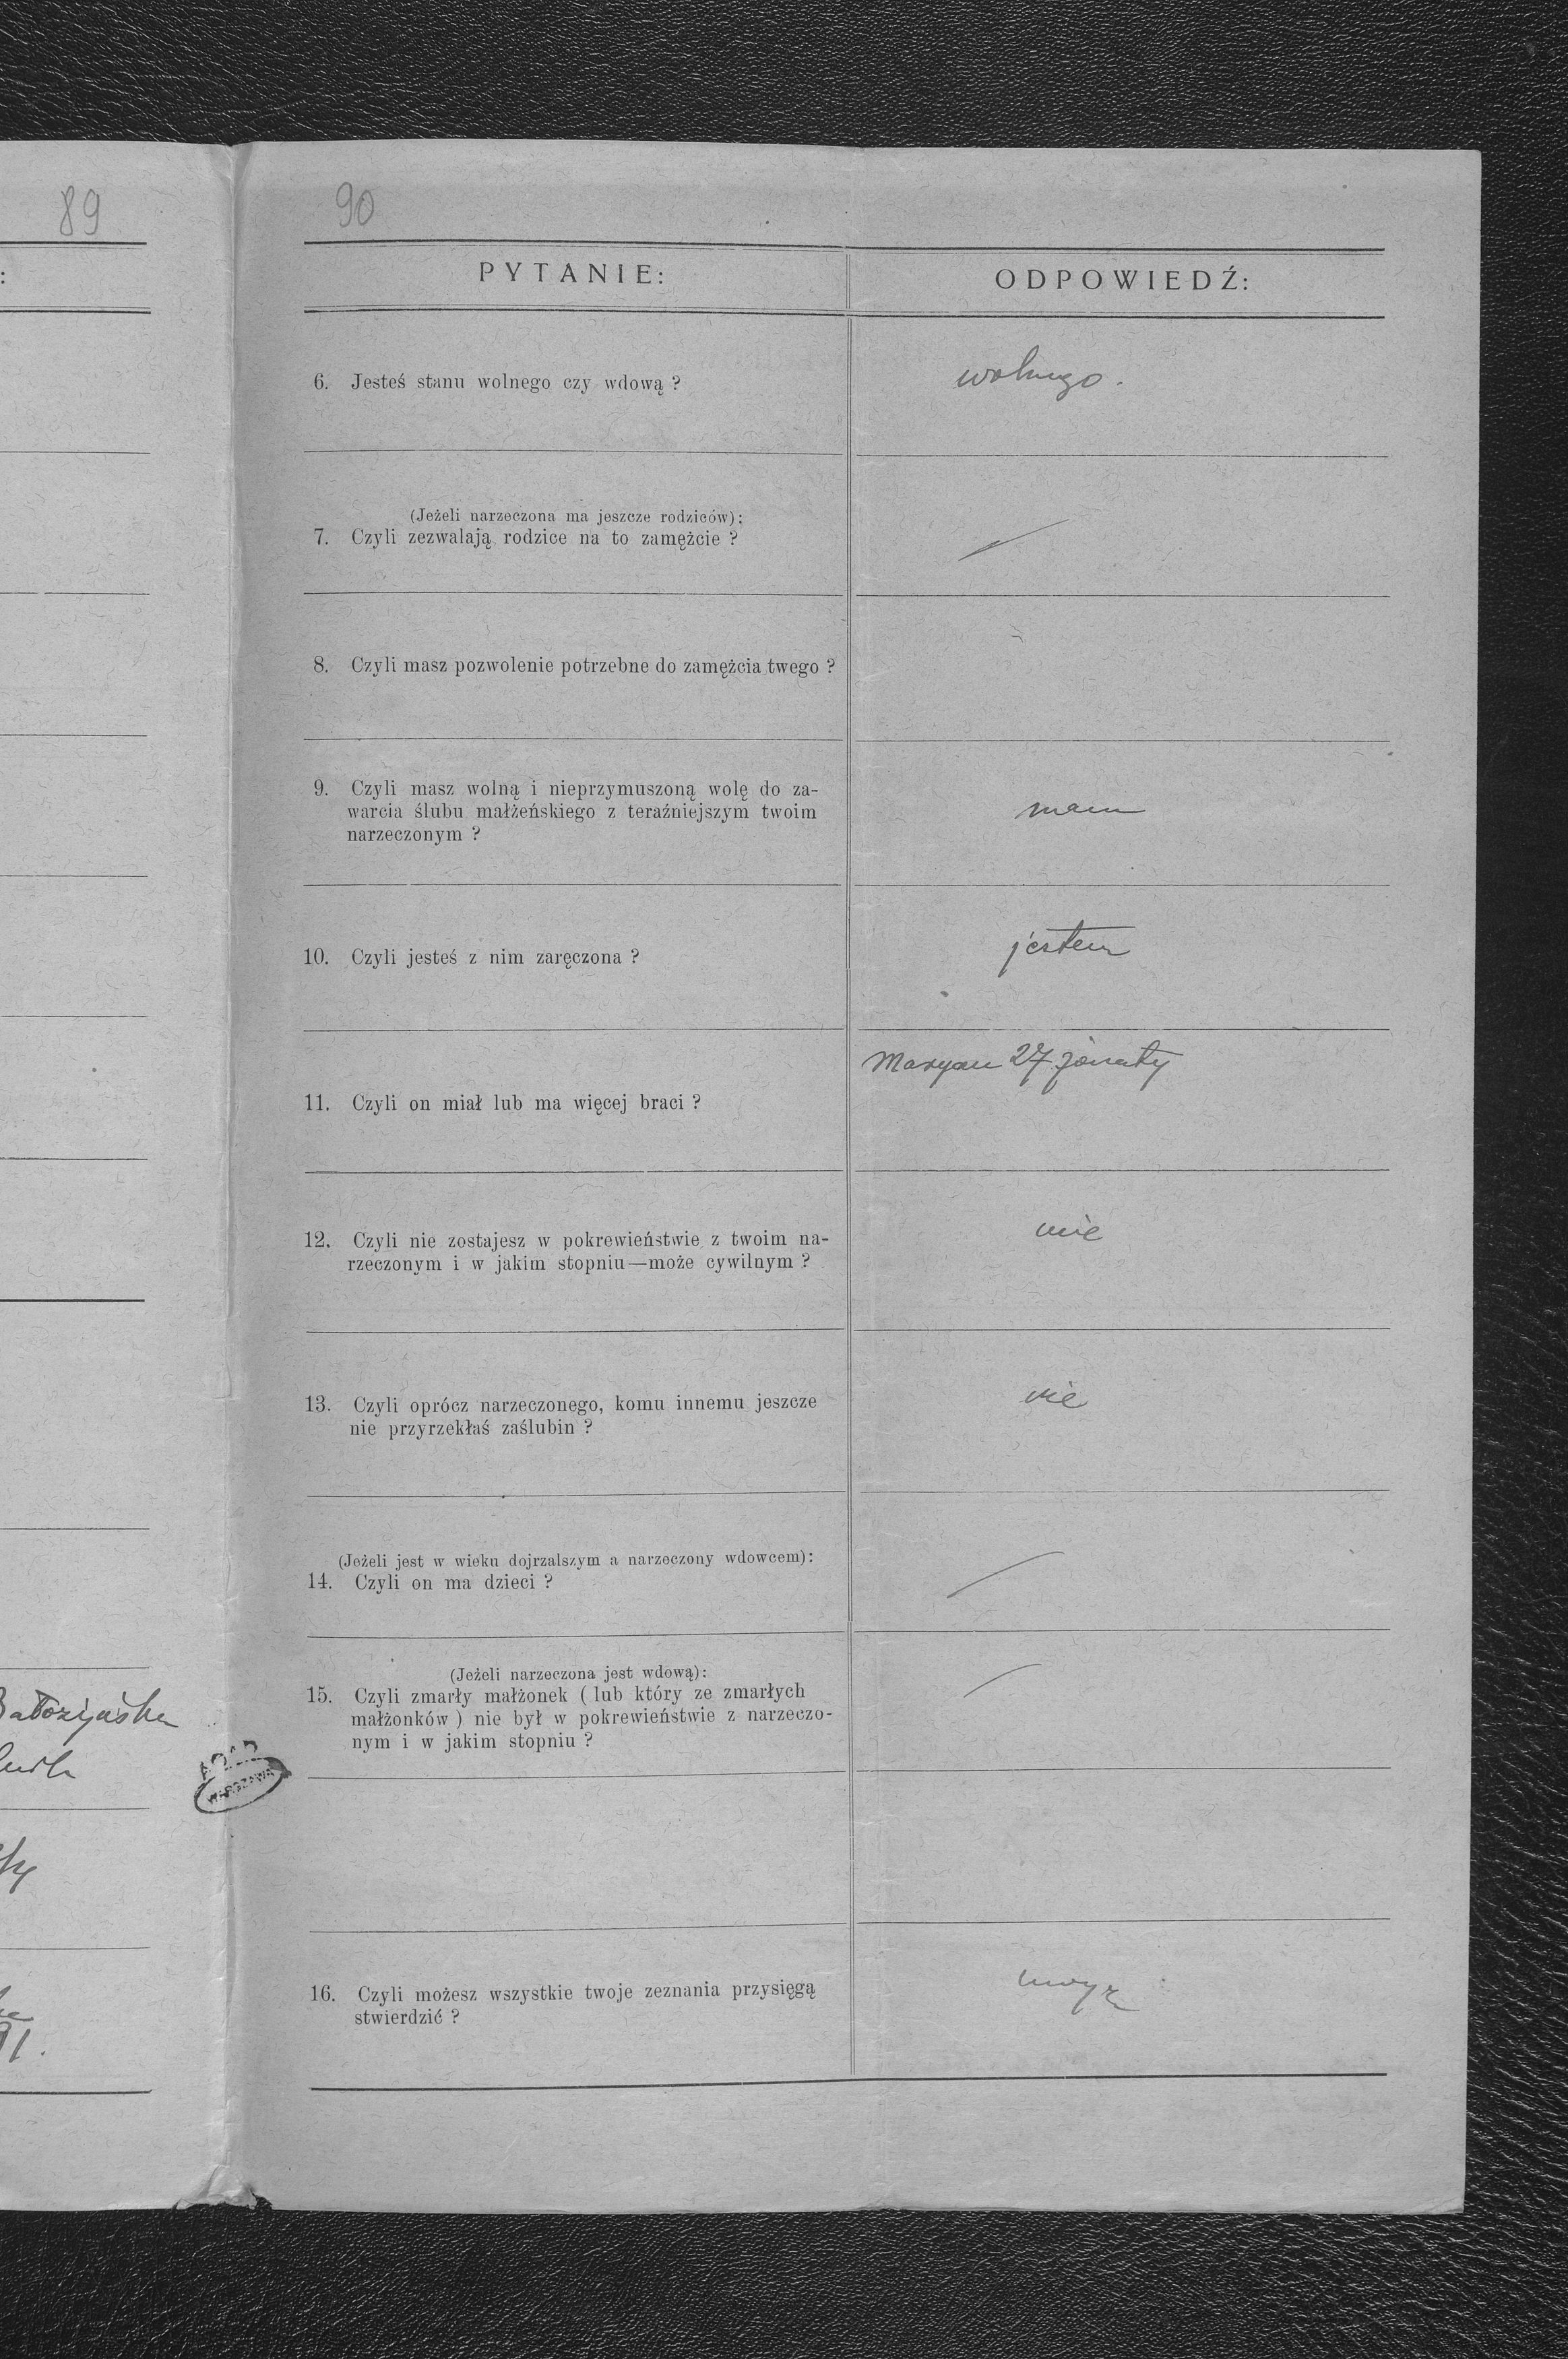 89
90
:
PYTANIE:
ODPOWIEDŹ:
6. Jesteś stanu wolnego czy wdową ?
wolnego.
(Jeżeli narzeczona ma jeszcze rodziców):
7. Czyli zezwalają rodzice na to zamężcie ?
8. Czyli masz pozwolenie potrzebne do zamężcia twego ?
9. Czyli masz wolną i nieprzymuszoną wolę do za-
warcia ślubu małżeńskiego z teraźniejszym twoim
narzeczonym ?
mam
10. Czyli jesteś z nim zaręczona ?
jestem
11. Czyli on miał lub ma więcej braci ?
Maryan 27 żonaty
12. Czyli nie zostajesz w pokrewieństwie z twoim na-
rzeczonym i w jakim stopniu—może cywilnym ?
nie
13. Czyli oprócz narzeczonego, komu innemu jeszcze
nie przyrzekłaś zaślubin ?
nie
(Jeżeli jest w wieku dojrzalszym a narzeczony wdowcem):
14. Czyli on ma dzieci ?
(Jeżeli narzeczona jest wdową):
15. Czyli zmarły małżonek ( lub który ze zmarłych
małżonków ) nie był w pokrewieństwie z narzeczo-
nym i w jakim stopniu ?
WARSZAWA
16. Czyli możesz wszystkie twoje zeznania przysięgą
stwierdzić ?
91.